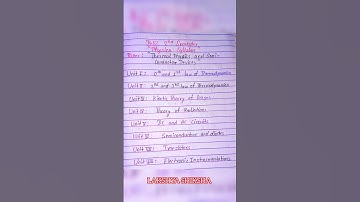 B.Sc. 2nd Semester
Physics Syllabus
Paper: Thermal Physics and Semi-
Conductor Devices
Unit I: 0th and 1st law of Thermodynamics
Unit II: 2nd and 3rd law of Thermodynamics
Unit III: Kinetic theory of Gases
Unit IV: Theory of Radiation
Unit V: DC and AC Circuits
Unit VI: Semiconductors and diodes
Unit VII: Transistors
Unit VIII: Electronic Instrumentations
LAKSHYA SHIKSHA